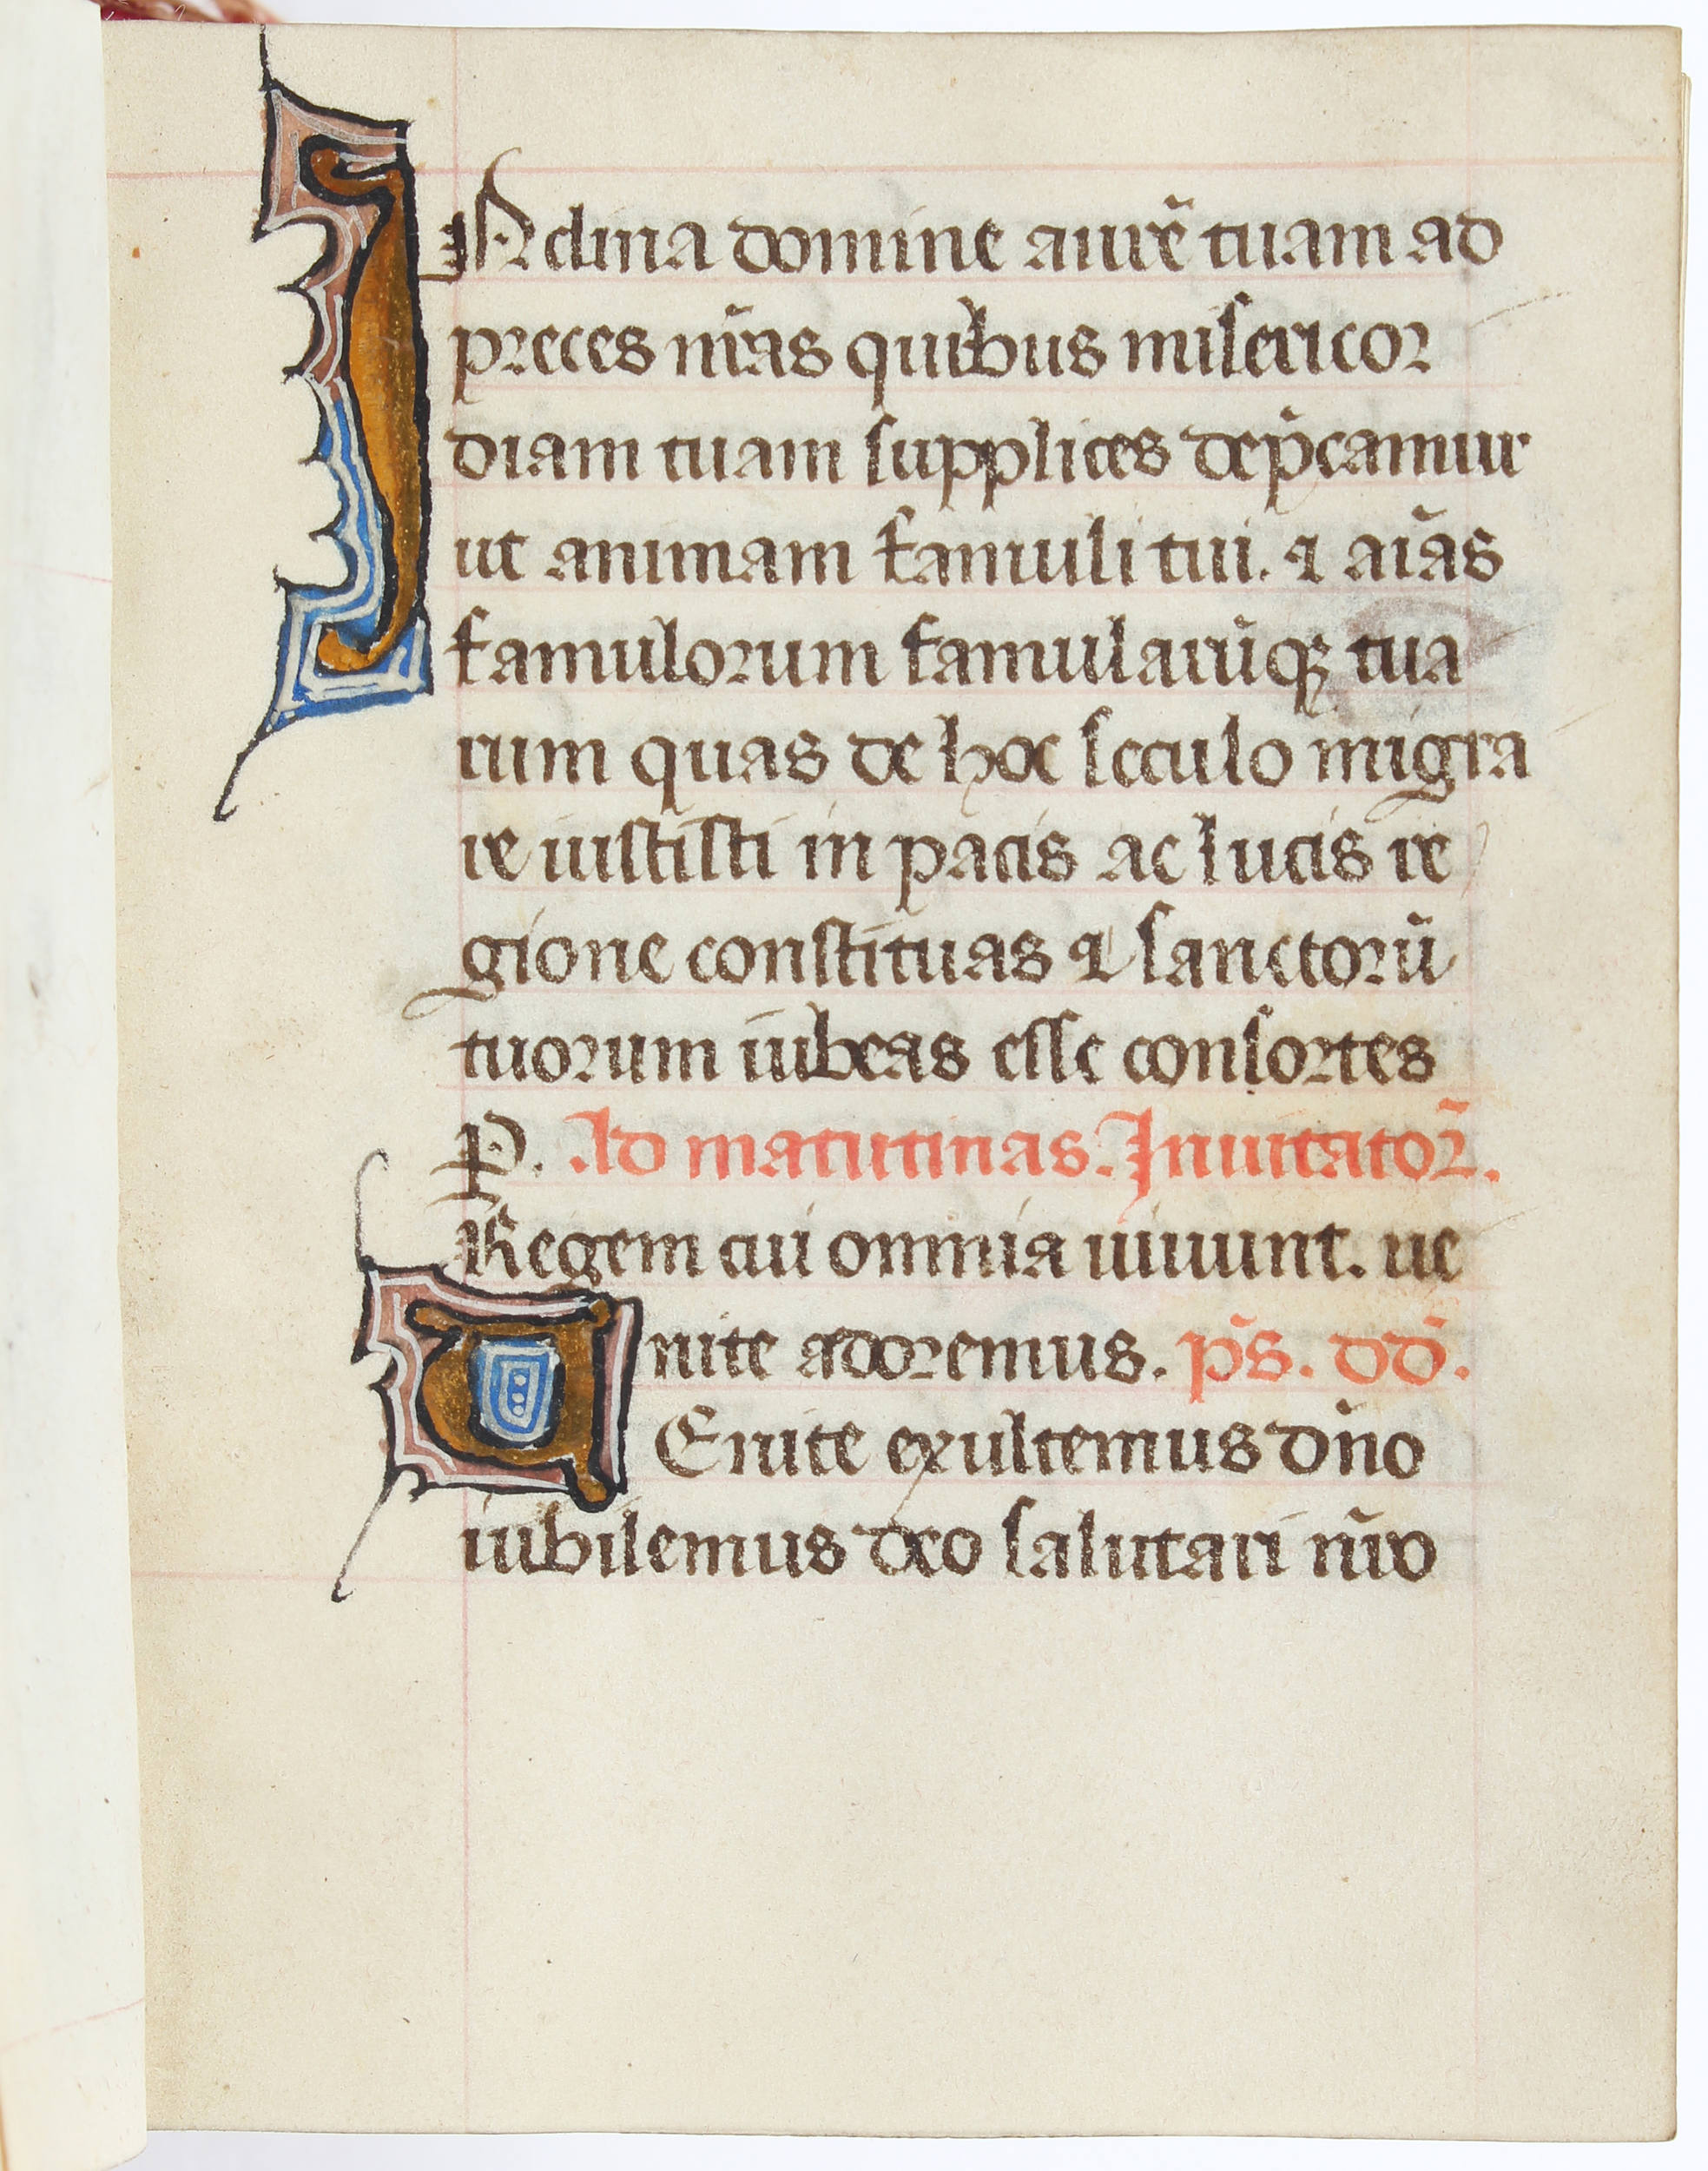 INclina domine aurē tuam ad
preces nr̄as quibus misericor
diam tuam supplices dep̄camur
ut animam famuli tui. ⁊ aīas
famulorum famularūqꝫ tua
rum quas de hoc seculo migra
re iustisti in pacis ac lucis re
gione constituas ⁊ sanctorū
tuorum iubeas esse consortes
P. Ad matutinas. Inuitator̄.
Regem cui omnia uiuunt. ue
nite adoremus. p̄s. dd̄.
VEnite exultemus dn̄o
iubilemus deo salutari nr̄o